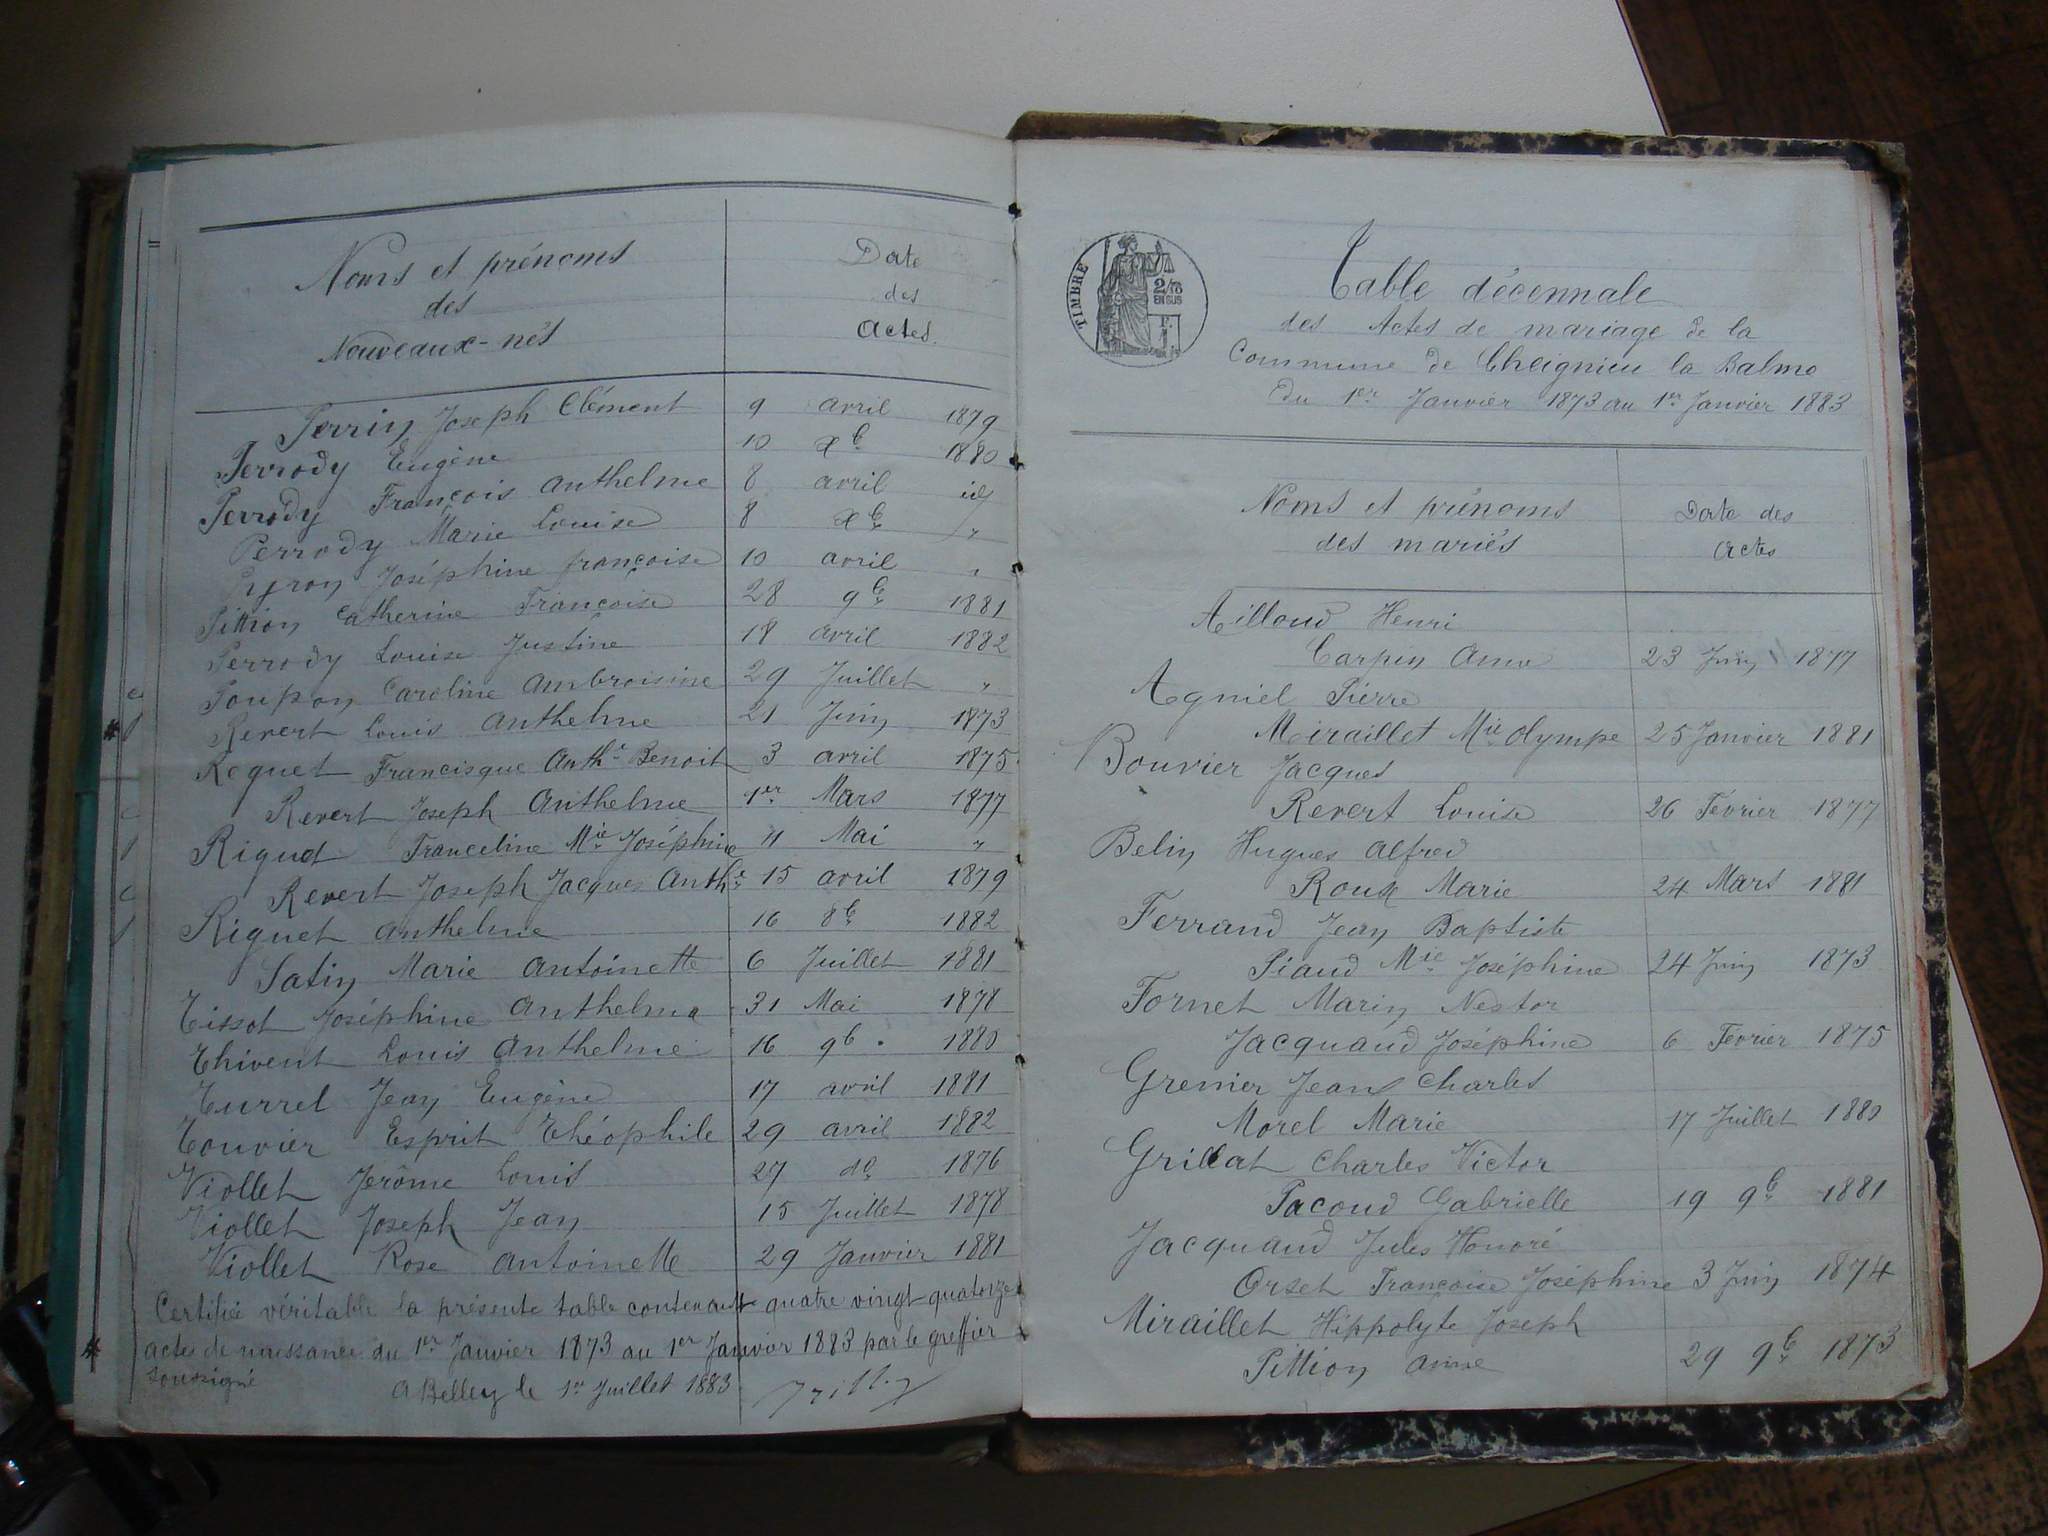 Noms et prénoms
des
Nouveaux-nés
Date
des
Actes.
Perrin Joseph Clément 9 avril 1879
Perrody Eugène 10 Xb 1880
Perrody François Anthelme 8 avril id
Perrody Marie Louise 8 Xb "
Pyron Joséphine françoise 10 avril "
Pittion Catherine Françoise 28 9b 1881
Perrody Louise Justine 18 avril 1882
Poupon Caroline Ambroisine 29 Juillet "
Revert Louis Anthelme 21 Juin 1873
Roquet Francisque Anthe Benoit 3 avril 1875
Revert Joseph Anthelme 1er Mars 1877
Riguet Franceline Mie Joséphine 11 Mai "
Revert Joseph Jacques Anthe 15 avril 1879
Riguet Anthelme 16 8b 1882
Satin Marie Antoinette 6 Juillet 1881
Tissot Joséphine Anthelma 31 Mai 1878
Thivent Louis Anthelme 16 9b. 1880
Turrel Jean Eugène 17 avril 1881
Touvier Esprit Théophile 29 avril 1882
Viollet Jérôme Louis 27 do 1876
Viollet Joseph Jean 15 Juillet 1878
Viollet Rose Antoinette 29 Janvier 1881
Certifiée véritable la présente table contenant quatre vingt quatorze
actes de naissance du 1er Janvier 1873 au 1er Janvier 1883 par le greffier
soussigné
A Belley le 1er Juillet 1883
TIMBRE
2/10
EN SUS
Table décennale
des Actes de mariage de la
Commune de Cheignieu la Balme
Du 1er Janvier 1873 au 1er Janvier 1883
Noms et prénoms
des mariés
Date des
Actes
Ailloud Henri
Carpin Anna 23 Juin 1877
Agniel Pierre
Miraillet Mie Olympe 25 Janvier 1881
Bouvier Jacques
Revert Louise 26 Février 1877
Belin Hugues Alfred
Roux Marie 24 Mars 1881
Ferrand Jean Baptiste
Piaud Mie Joséphine 24 Juin 1873
Fornet Marin Nestor
Jacquand Joséphine 6 Février 1875
Grenier Jean Charles
Morel Marie 17 Juillet 1880
Grillat Charles Victor
Pacoud Gabrielle 19 9b 1881
Jacquand Jules Honoré
Orset Françoise Joséphine 3 Juin 1874
Miraillet Hippolyte Joseph
Pittion Anne 29 9b 1873